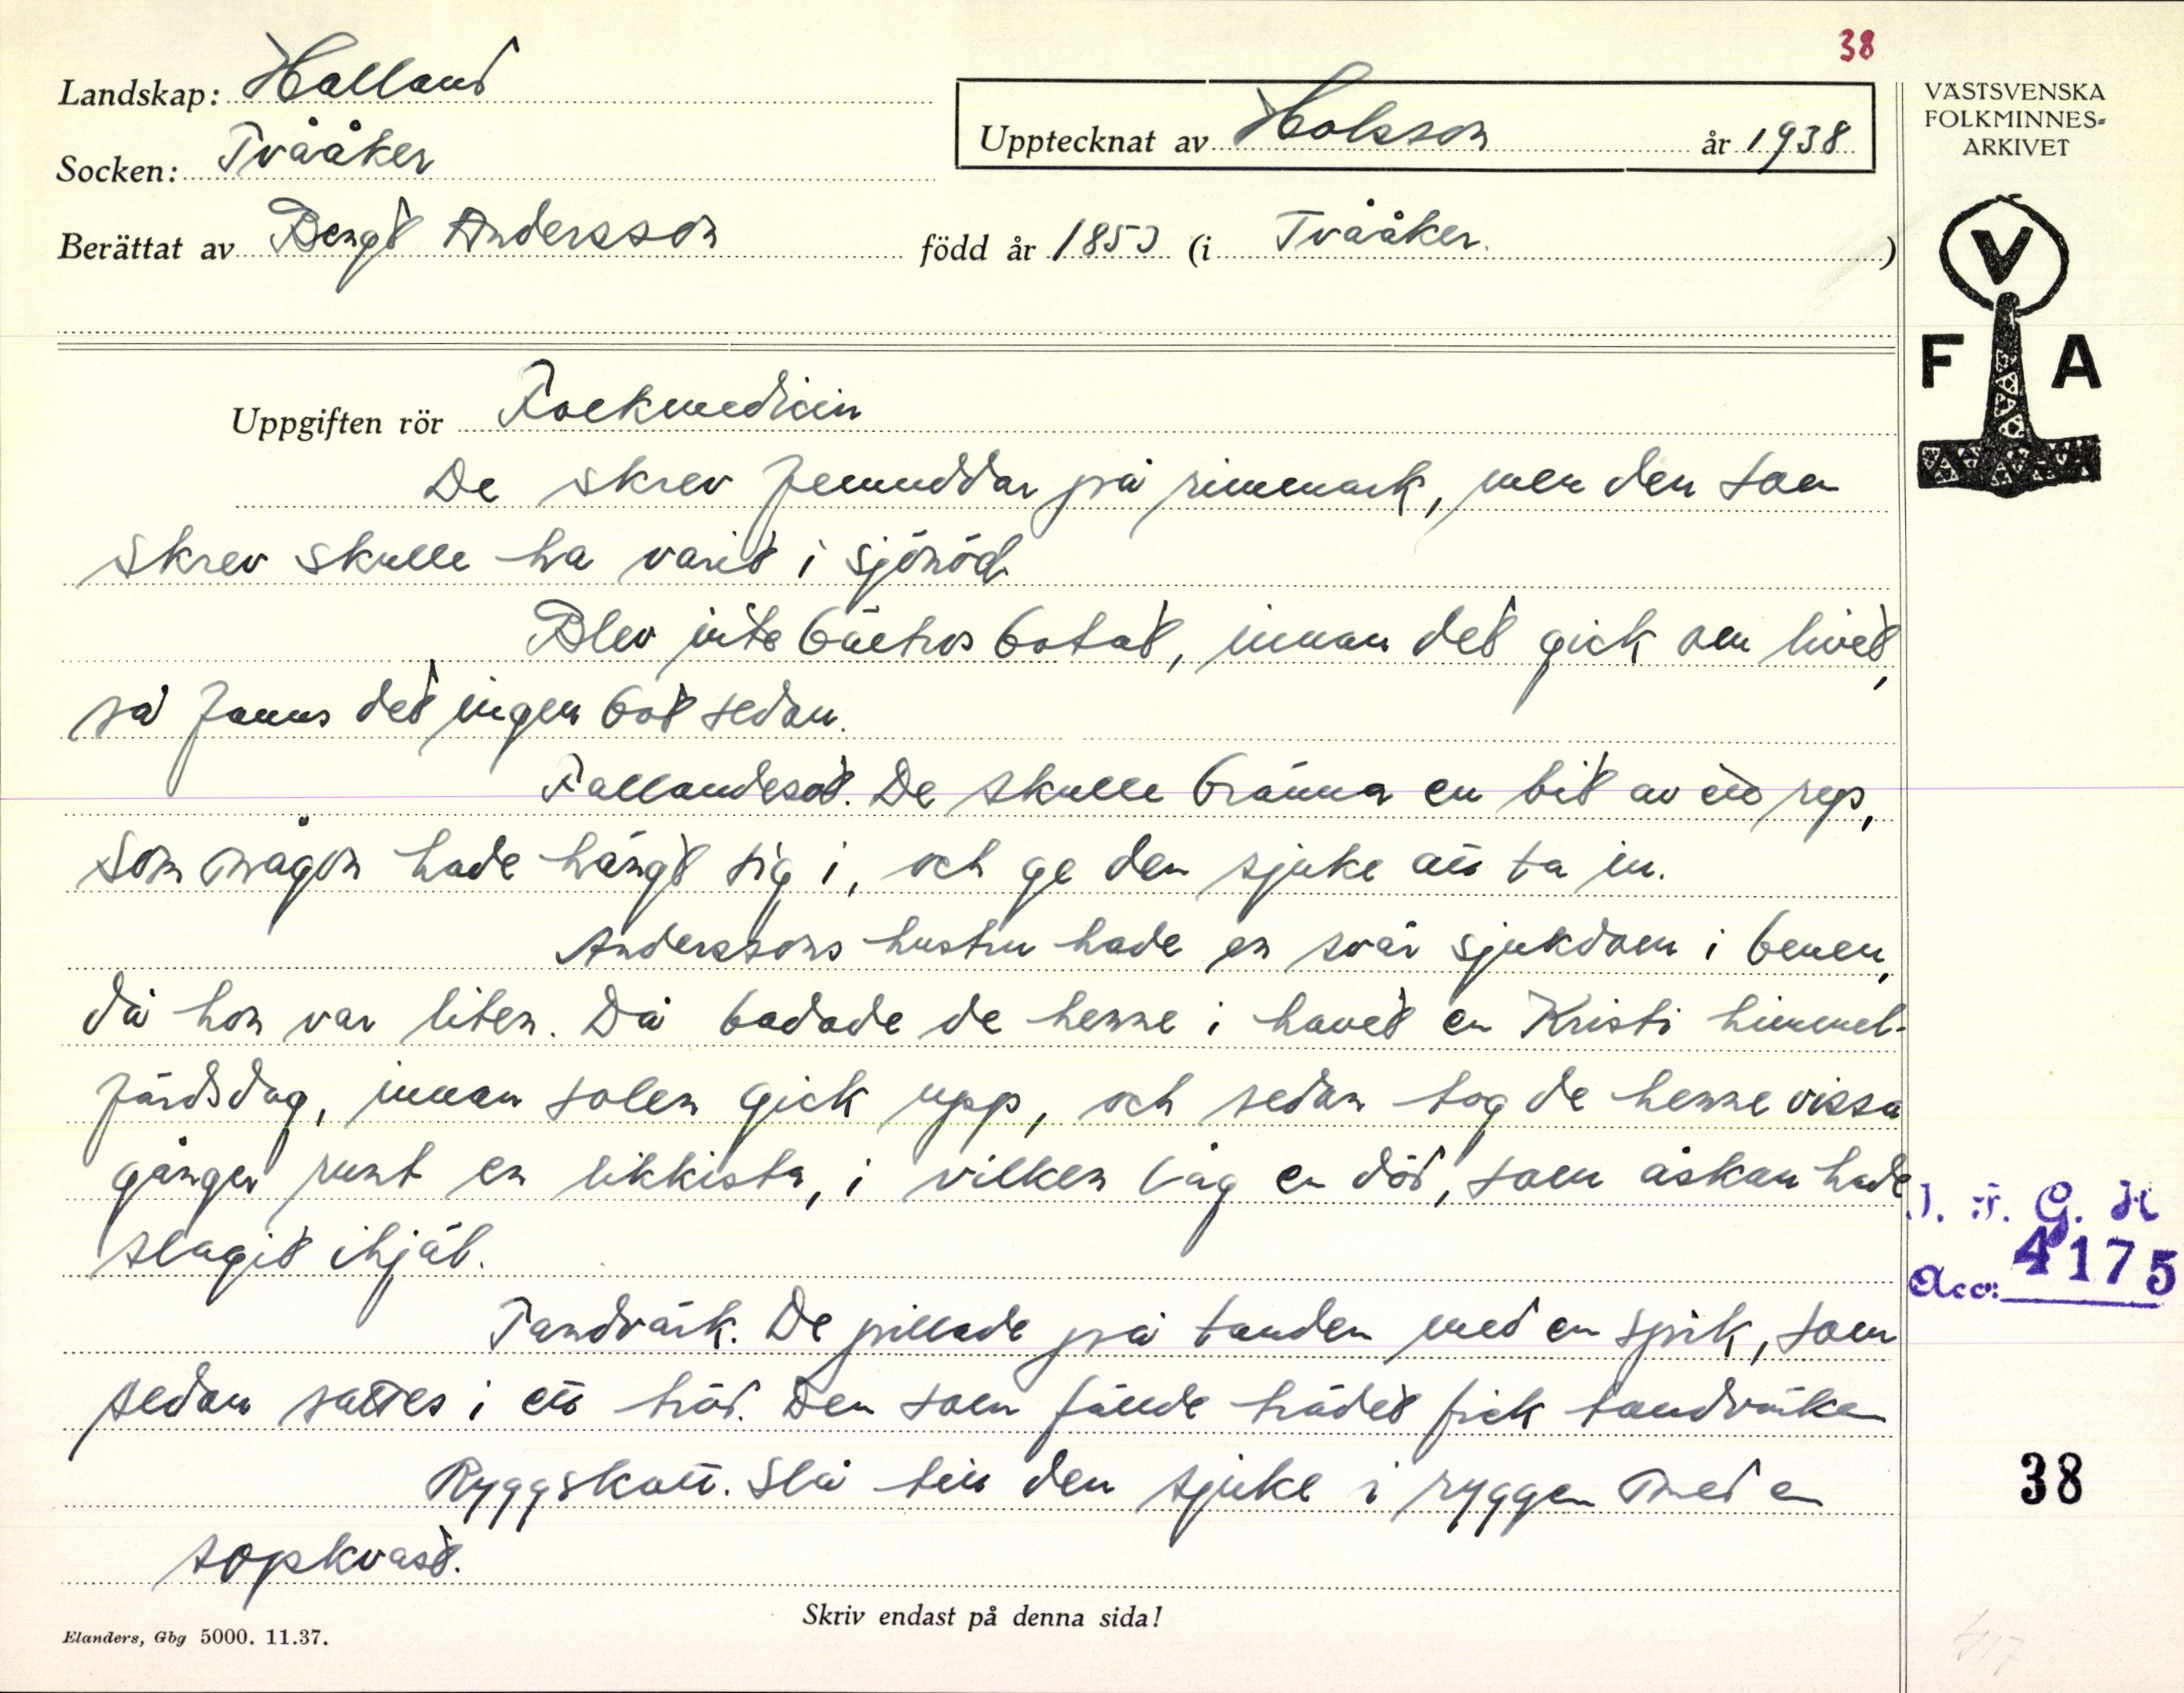 38
Landskap: Halland
Socken: Tvååker
Upptecknat av Holsson år 1938
VÄSTSVENSKA
FOLKMINNES-
ARKIVET
Berättat av Bengt Andersson född år 1853 (i Tvååker.)
V
F A
Uppgiften rör Folkmedicin
De skrev femuddar på rimmark, men den som
skrev skulle ha varit i sjönöd
Blev inte bältros botat, innan det gick om livet,
så fanns det ingen bot sedan.
Fallandesot. De skulle bränna en bit av ett rep,
som någon hade hängt sig i, och ge den sjuke att ta in.
Anderssons hustru hade en svår sjukdom i benen,
då hon var liten. Då badade de henne i havet en Kristi himmel-
färdsdag, innan solen gick upp, och sedan tog de henne vissa
gånger runt en likkista, i vilken låg en död, som åskan hade
slagit ihjäl.
I. F. G. H
Acc: 4175
Tandvärk. De pillade på tanden med en spik, som
sedan sattes i ett träd. Den som fällde trädet fick tandvärken
Ryggskott. Slå till den sjuke i ryggen med en
sopkvast.
38
Skriv endast på denna sida!
Elanders, Gbg 5000. 11.37.
417